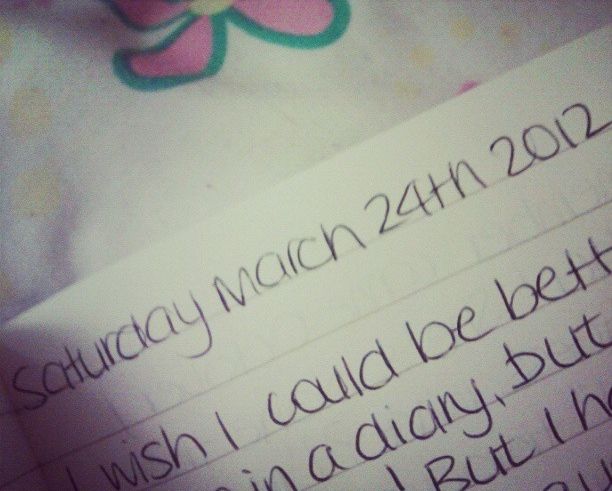 Saturday March 24th 2012
I wish I could be bett
in a diary, but
But I ha